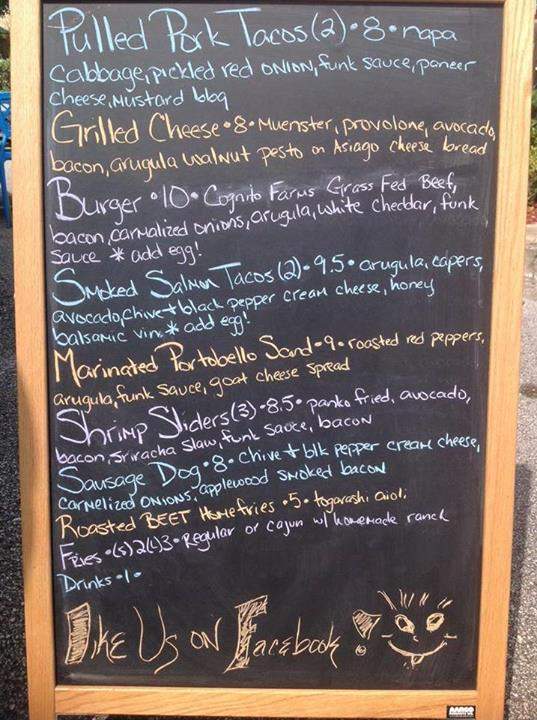 Pulled Pork Tacos (2) • 8 • napa
cabbage, pickled red onion, funk sauce, paneer
cheese, mustard bbq
Grilled Cheese • 8 • Muenster, provolone, avocado,
bacon, arugula walnut pesto on Asiago cheese bread
Burger • 10 • Cognito Farms Grass Fed Beef,
bacon, carmalized onions, arugula, white cheddar, funk
sauce * add egg!
Smoked Salmon Tacos (2) • 9.5 • arugula, capers,
avocado, chive + black pepper cream cheese, honey
balsamic vin * add egg!
Marinated Portobello Sand • 9 • roasted red peppers,
arugula, funk sauce, goat cheese spread
Shrimp Sliders (3) • 8.5 • panko fried, avocado,
bacon, sriracha slaw, funk sauce, bacon
Sausage Dog • 8 • chive + blk pepper cream cheese,
carmelized onions, applewood smoked bacon
Roasted BEET Homefries • 5 • togarashi aioli
Fries • (s) 2 (L) 3 • Regular or cajun w/ homemade ranch
Drinks • 1 •
Like Us on Facebook!
AARCO